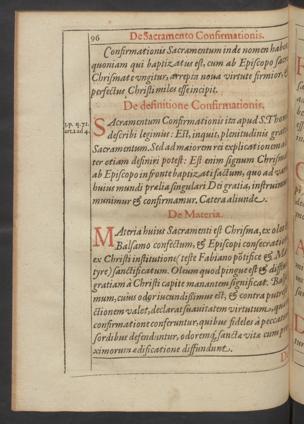 96 De Sacramento Confirmationis.
Confirmationis Sacramentum inde nomen habet
quoniam qui baptizatus est, cum ab Episcopo sacro
Chrismate vngitur, arrepta noua virtute firmior, &
perfectus Christi miles esse incipit.
De definitione Confirmationis.
SAcramentum Confirmationis ita apud S. Thom
describi legimus: Est, inquit, plenitudinis gratiæ
Sacramentum. Sed ad maiorem rei explicationem
ter etiam definiri potest: Est enim signum Chrisma
ab Episcopo in fronte baptizati factum, quo ad
huius mundi prælia singulari Dei gratia,
munimur & confirmamur. Cætera aliunde.
De Materia.
MAteria huius Sacramenti est Chrisma, ex oleo &
Balsamo confectum, & Episcopi consecratione
ex Christi institutione (teste Fabiano põtifice & Mar
tyre) sanctificatum. Oleum quod pingue est &
gratiam à Christi capite manantem significat. Balsa
mum, cuius odor iucundissimus est, & contra
ctionem valet, declarat suauitatem virtutum, quæ
confirmatione conferuntur, quibus fideles à peccati
sordibus defenduntur, odoremq́; sanctæ vitæ cum pro
ximorum ædificatione diffundunt.